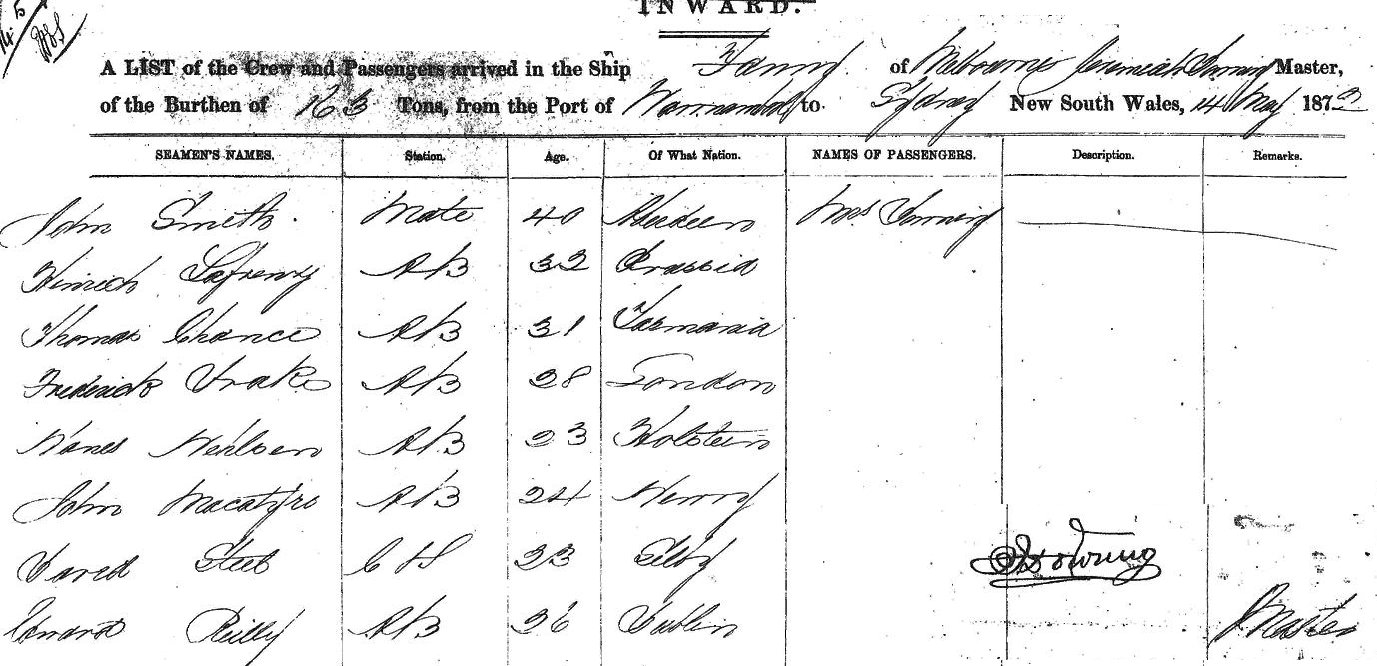 INWARD.
A LIST of the Crew and Passengers arrived in the Ship Fanny of Melbourne Jeremiah Master,
of the Burthen of 163 Tons, from the Port of to Sydney New South Wales, 14 May 187
SEAMEN'S NAMES. Station. Age. Of What Nation. NAMES OF PASSENGERS. Description. Remarks.
John Smith. Mate 40 Aberdeen Mrs
Hinrich AB 32 Prussia
Thomas Chance AB 31 Tasmania
Frederick Drake AB 28 London
AB 23 Holstein
John AB 24
C & S 23
Edward Reilly AB 36 Dublin
Master